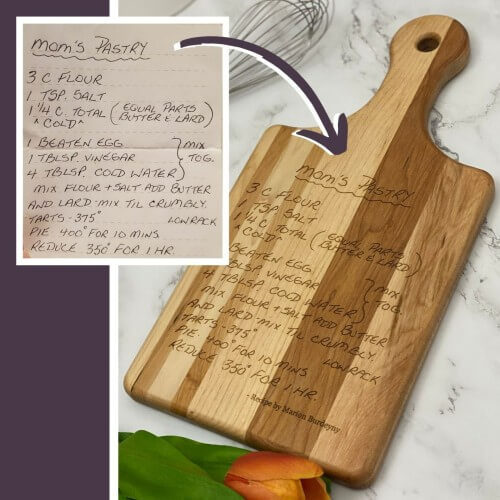 Mom's Pastry
3 C Flour
1 Tsp. Salt
1 1/4 C. Total (Equal Parts
"Cold" Butter & Lard)
1 Beaten Egg } Mix
1 Tblsp. Vinegar } Tog.
4 Tblsp. Cold Water
Mix Flour + Salt Add Butter
and Lard - Mix Til Crumbly.
Tarts - 375° Low Rack
Pie 400° For 10 Mins
Reduce 350° For 1 Hr.
Mom's Pastry
3 C Flour
1 Tsp. Salt
1 1/4 C. Total (Equal Parts
"Cold" Butter & Lard)
1 Beaten Egg } Mix
1 Tblsp. Vinegar } Tog.
4 Tblsp. Cold Water
Mix Flour + Salt Add Butter
and Lard - Mix Til Crumbly.
Tarts - 375° Low Rack
Pie 400° For 10 Mins
Reduce 350° For 1 Hr.
- Recipe by Marion Burdeyny